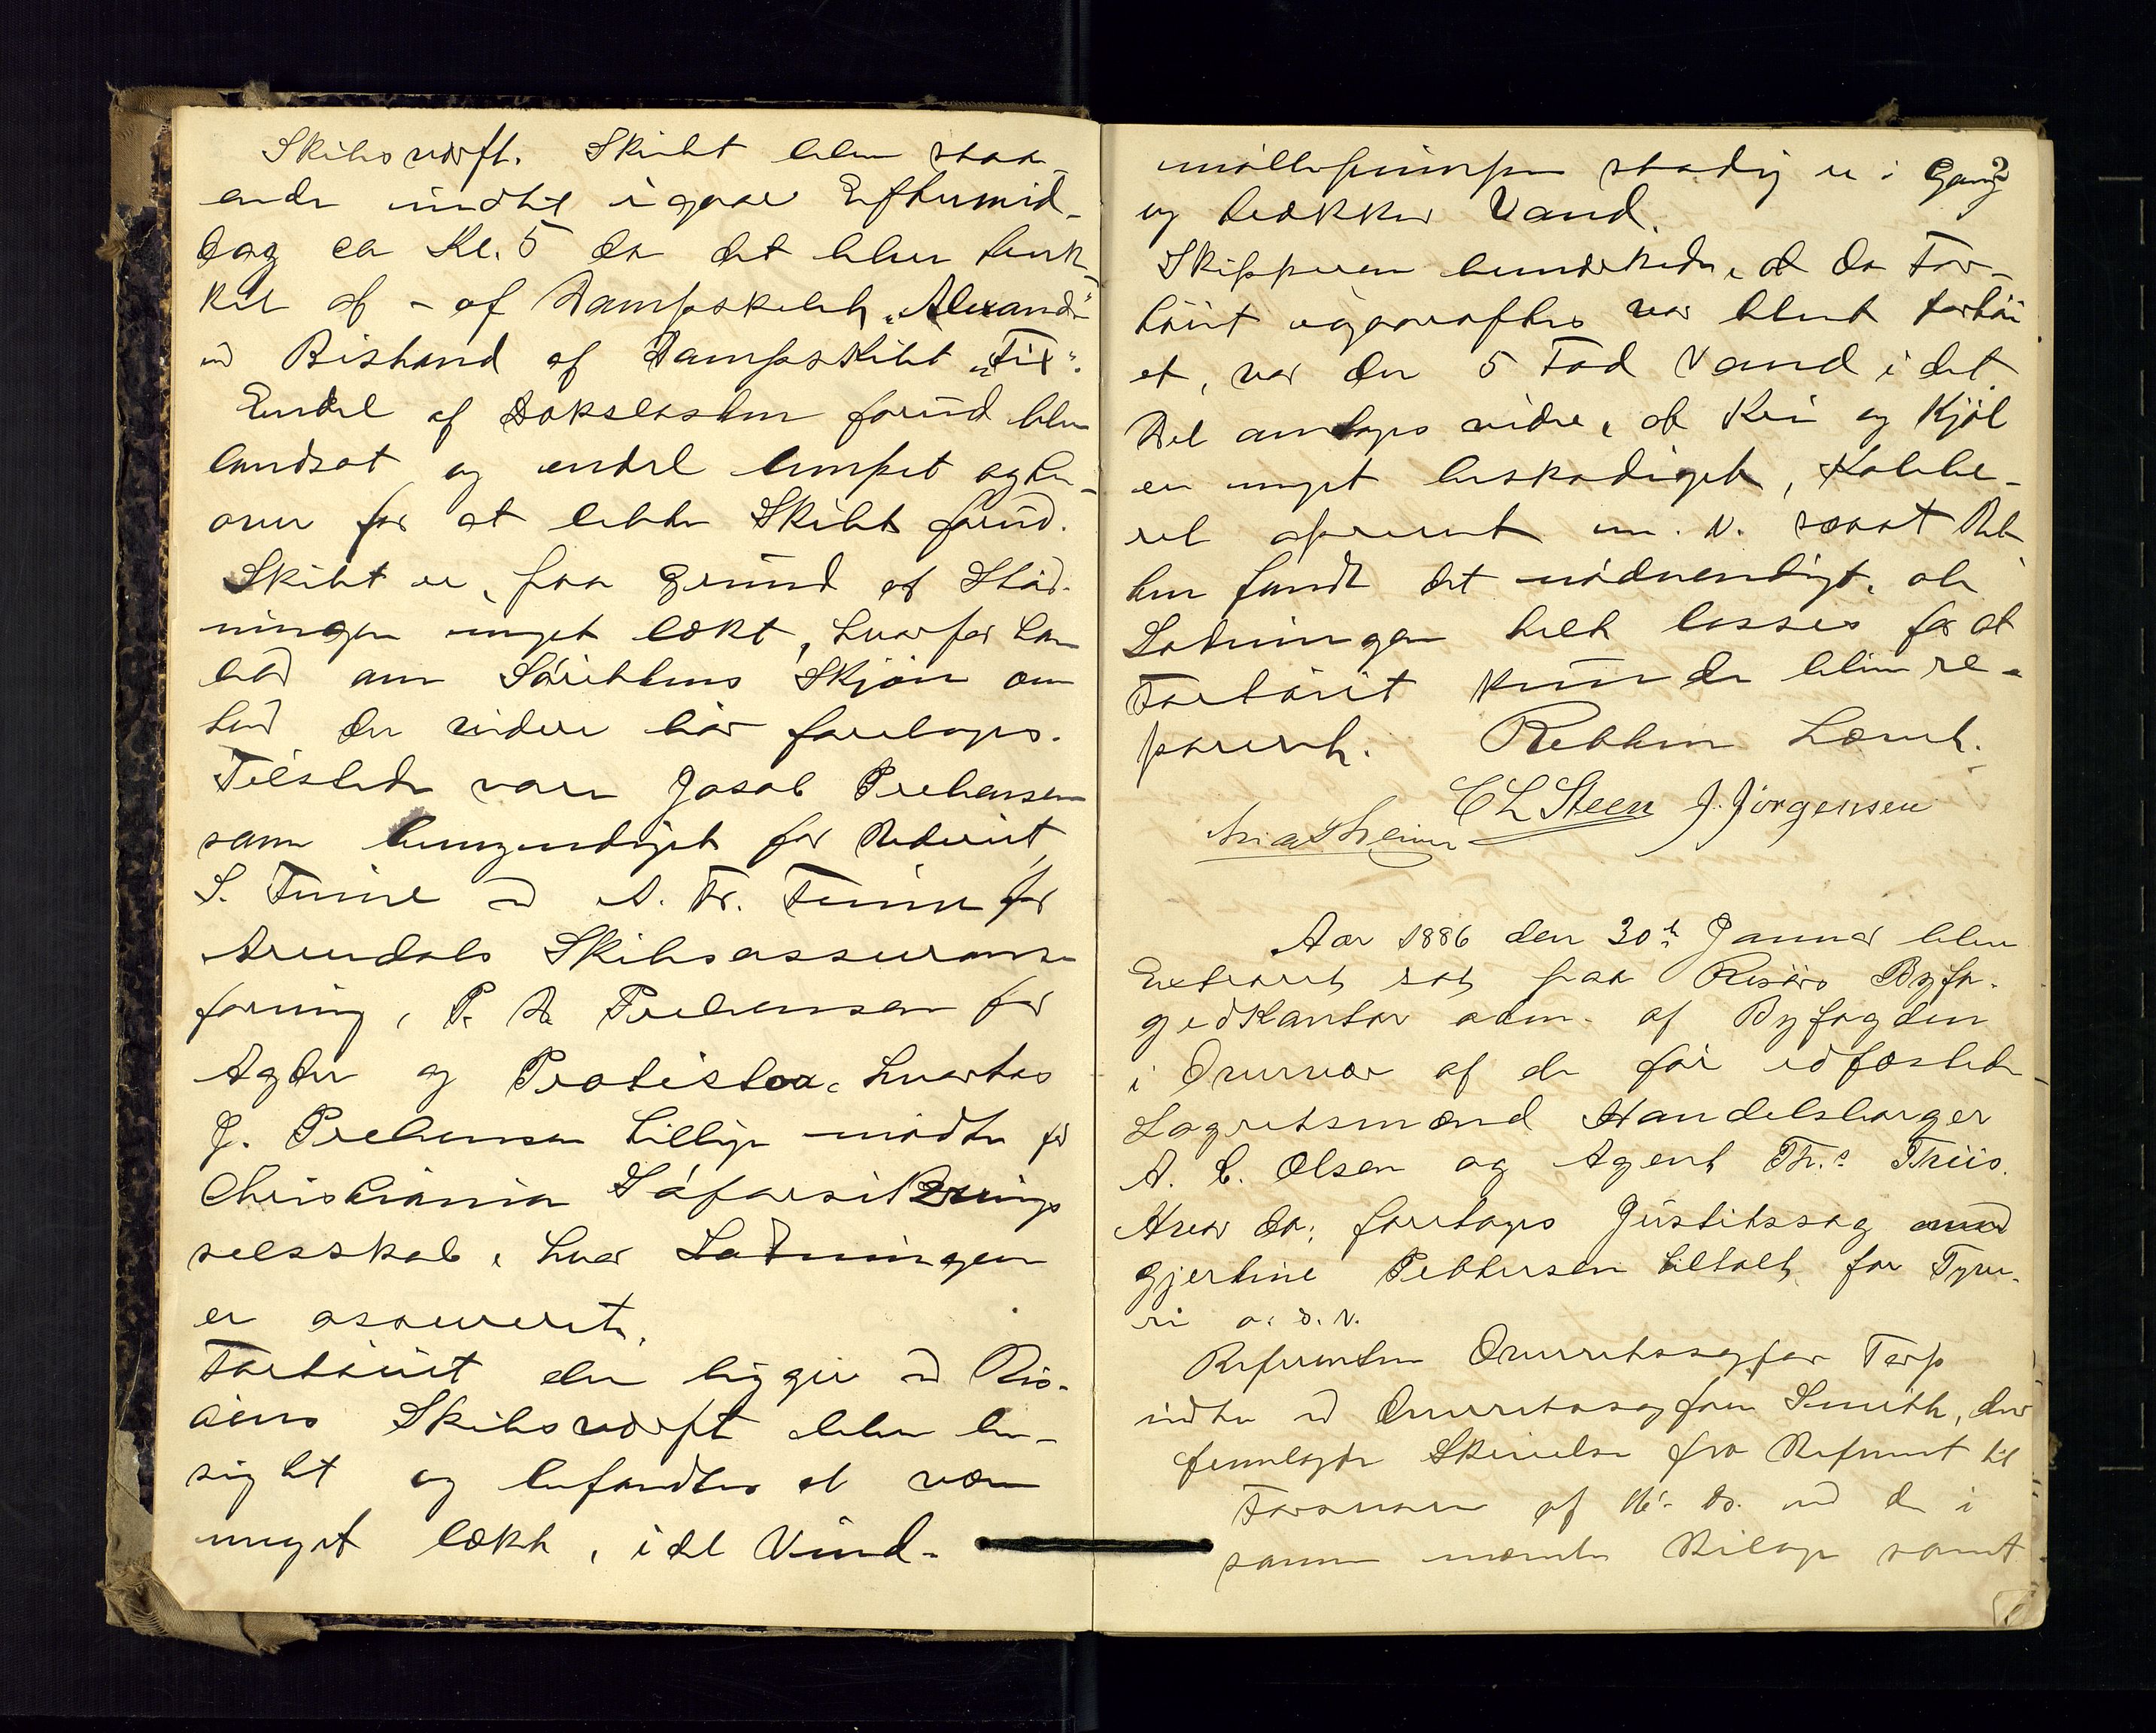 Skibsværft. Skibet blev staa-
ende indtil igaar Eftermid-
dag ca Kl. 5 da det blev truk-
ket af - af Dampskibet "Alexandr"
ved Bistand af Dampskibet "Fix".
Endel af Dækslasten forud blev
landsat og endel lempet agter-
over for at lette Skibet forud.
Skibet er, paa Grund af Stød-
ningen meget lækt, hvorfor han
bad om Sørettens Skjøn om
hvad der videre bør foretages.
Tilstede vare Jacob Prebensen
som bemyndiget for Rederiet,
S. Finne ved A. Fr. Finne for
Arendals Skibsassurance
forening, P. A. Prebensen for
Agder og Protector, hvorhos
J. Prebensen tillige mødte for
Christiania Søforsikrings
selskab, hvor Ladningen
er assureret.
Fartøiet der ligger ved Ris-
øens Skibsværft blev be-
sigtet og befandtes at være
meget lækt, idet Vind-
2
møllepumpen stadig er i Gang
og trækker Vand.
Skipperen bemærkede, at da Far-
tøiet igaaraftes var blevet fortøi
et, var der 5 Fod Vand i det
Det antages videre, at Kri og Kjøl
er meget beskadiget, Kobbe-
ret afrevet m. V. saaat Ret
ten fandt det nødvendigt, at
Ladningen helt losses for at
Fartøiet kunde blive re-
pareret. Retten hævet.
C L Steen J. Jörgensen

Aar 1886 den 30te Januar blev
Extraret sat paa Risørs Byfo-
gedkontor adm. af Byfogden
i Overvær af de før edfæstede
Lagretsmænd Handelsborger
A. C. Olsen og Agent Th.s Friis.
Hvor da: foretages Justitssag mod
Gjertine Pettersen tiltalt for Tyve-
ri o. s. v.
Referenten Overretssagfører Terp
mødte ved Overretssagfører Smith, der
fremlagde Skrivelse fra Referent til
Forsvarer af 16de ds. med de i
samme nævnte Bilage samt